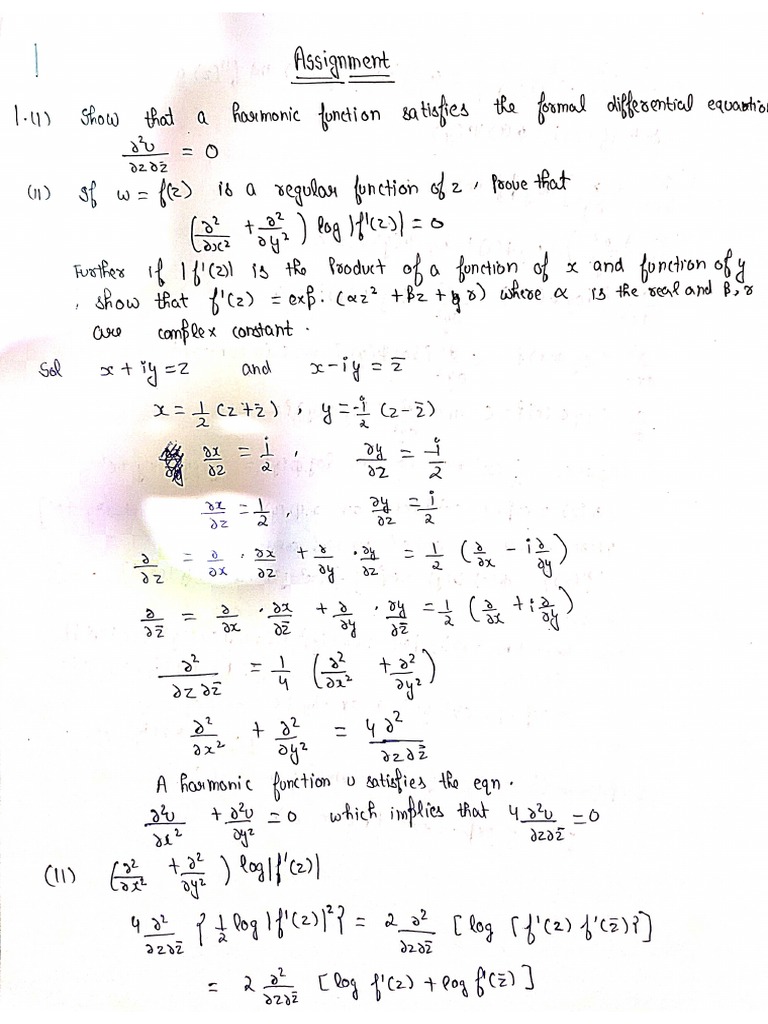 1
Assignment
1.(I) Show that a harmonic function satisfies the formal differential equation
∂²υ/∂z∂z̄ = 0
(II) If w = f(z) is a regular function of z, prove that
(∂²/∂x² + ∂²/∂y²) log |f'(z)| = 0
Further if |f'(z)| is the Product of a function of x and function of y
, show that f'(z) = exp. (αz² + βz + γ) where α is the real and β, γ
are complex constant.
Sol x + iy = z and x - iy = z̄
x = 1/2 (z + z̄), y = -i/2 (z - z̄)
∂x/∂z = i/2, ∂y/∂z = -i/2
∂x/∂z = 1/2, ∂y/∂z = i/2
∂/∂z = ∂/∂x · ∂x/∂z + ∂/∂y · ∂y/∂z = 1/2 (∂/∂x - i∂/∂y)
∂/∂z̄ = ∂/∂x · ∂x/∂z̄ + ∂/∂y · ∂y/∂z̄ = 1/2 (∂/∂x + i∂/∂y)
∂²/∂z∂z̄ = 1/4 (∂²/∂x² + ∂²/∂y²)
∂²/∂x² + ∂²/∂y² = 4∂²/∂z∂z̄
A harmonic function υ satisfies the eqn.
∂²υ/∂x² + ∂²υ/∂y² = 0 which implies that 4∂²υ/∂z∂z̄ = 0
(II) (∂²/∂x² + ∂²/∂y²) log|f'(z)|
4∂²/∂z∂z̄ {1/2 log |f'(z)|²} = 2 ∂²/∂z∂z̄ [log {f'(z) f'(z̄)}]
= 2 ∂²/∂z∂z̄ [log f'(z) + log f'(z̄)]